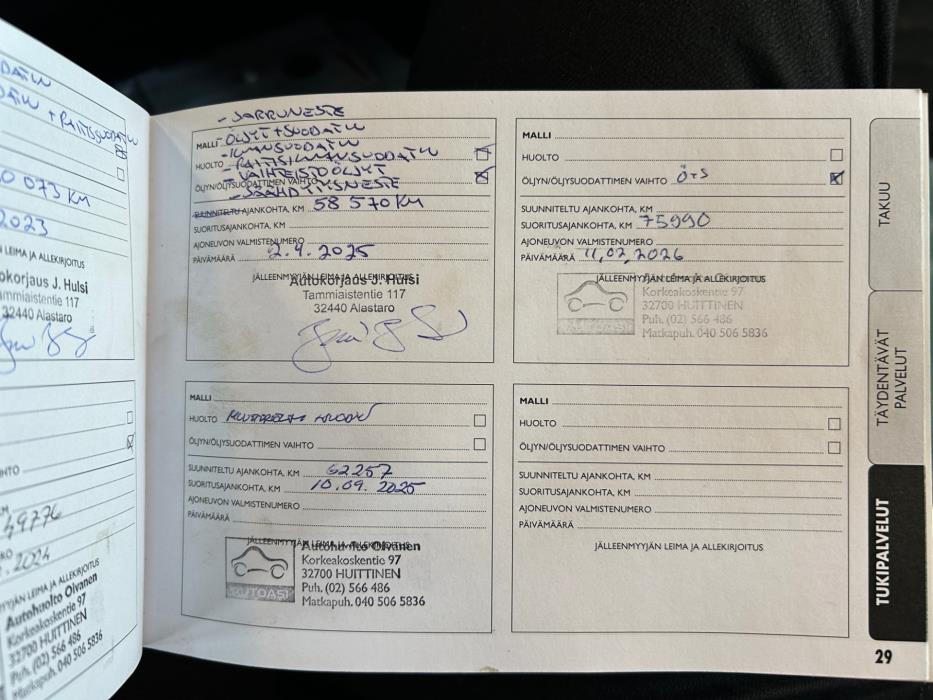 DATIN
DATIN + RAITISSUODATIN
0 073 KM
2023
LEIMA JA ALLEKIRJOITUS
okorjaus J. Hulsi
mmiaistentie 117
32440 Alastaro
49776
2024
YYJÄN LEIMA JA ALLEKIRJOITUS
Autohuolto Oivanen
Korkeakoskentie 97
32700 HUITTINEN
Puh. (02) 566 486
Matkapuh. 040 506 5836
- JARRUNESTE
MALLI - ÖLJYT + SUODATIN
- ILMANSUODATIN
HUOLTO - RAITISILMANSUODATIN
- VAIHTEISTOÖLJYT
ÖLJYN/ÖLJYSUODATTIMEN VAIHTO
- JÄÄHDYTYSNESTE
SUUNNITELTU AJANKOHTA, KM 58 570 KM
SUORITUSAJANKOHTA, KM
AJONEUVON VALMISTENUMERO
PÄIVÄMÄÄRÄ 2.4.2025
JÄLLEENMYYJÄN LEIMA JA ALLEKIRJOITUS
Autokorjaus J. Hulsi
Tammiaistentie 117
32440 Alastaro
MALLI
HUOLTO
ÖLJYN/ÖLJYSUODATTIMEN VAIHTO
SUUNNITELTU AJANKOHTA, KM 62257
SUORITUSAJANKOHTA, KM 10.09.2025
AJONEUVON VALMISTENUMERO
PÄIVÄMÄÄRÄ
JÄLLEENMYYJÄN LEIMA JA ALLEKIRJOITUS
Autohuolto Oivanen
Korkeakoskentie 97
32700 HUITTINEN
Puh. (02) 566 486
Matkapuh. 040 506 5836
AUTOASI
MALLI
HUOLTO
ÖLJYN/ÖLJYSUODATTIMEN VAIHTO Ö+S
SUUNNITELTU AJANKOHTA, KM
SUORITUSAJANKOHTA, KM 75990
AJONEUVON VALMISTENUMERO
PÄIVÄMÄÄRÄ 11,02,2026
JÄLLEENMYYJÄN LEIMA JA ALLEKIRJOITUS
Korkeakoskentie 97
32700 HUITTINEN
Puh. (02) 566 486
Matkapuh. 040 506 5836
AUTOASI
MALLI
HUOLTO
ÖLJYN/ÖLJYSUODATTIMEN VAIHTO
SUUNNITELTU AJANKOHTA, KM
SUORITUSAJANKOHTA, KM
AJONEUVON VALMISTENUMERO
PÄIVÄMÄÄRÄ
JÄLLEENMYYJÄN LEIMA JA ALLEKIRJOITUS
TAKUU
TÄYDENTÄVÄT
PALVELUT
TUKIPALVELUT
29